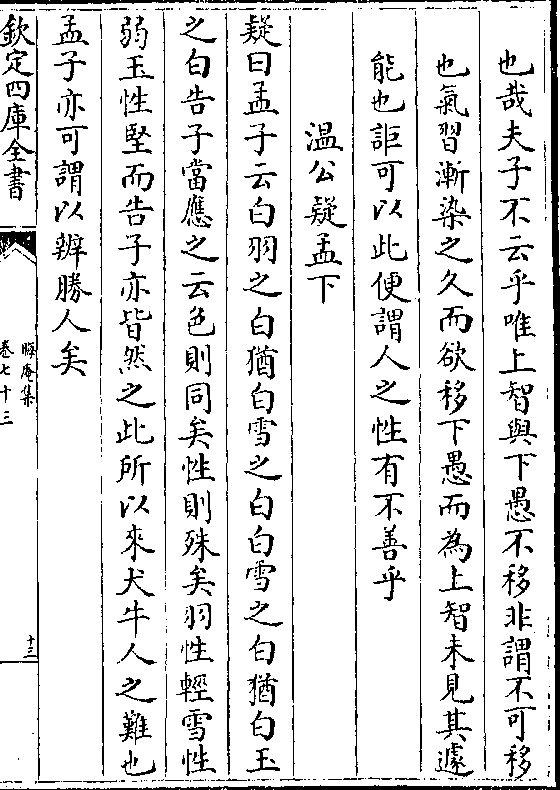 也哉夫子不云乎唯上智與下愚不移非謂不可移
也氣習漸染之久而欲移下愚而為上智未見其遽
能也詎可以此便謂人之性有不善乎
溫公疑孟下
疑曰孟子云白羽之白猶白雪之白白雪之白猶白玉
之白告子當應之云色則同矣性則殊矣羽性輕雪性
弱玉性堅而告子亦皆然之此所以來犬牛人之難也
孟子亦可謂以辨勝人矣
欽定四庫全書
晦庵集
卷七十三
十三